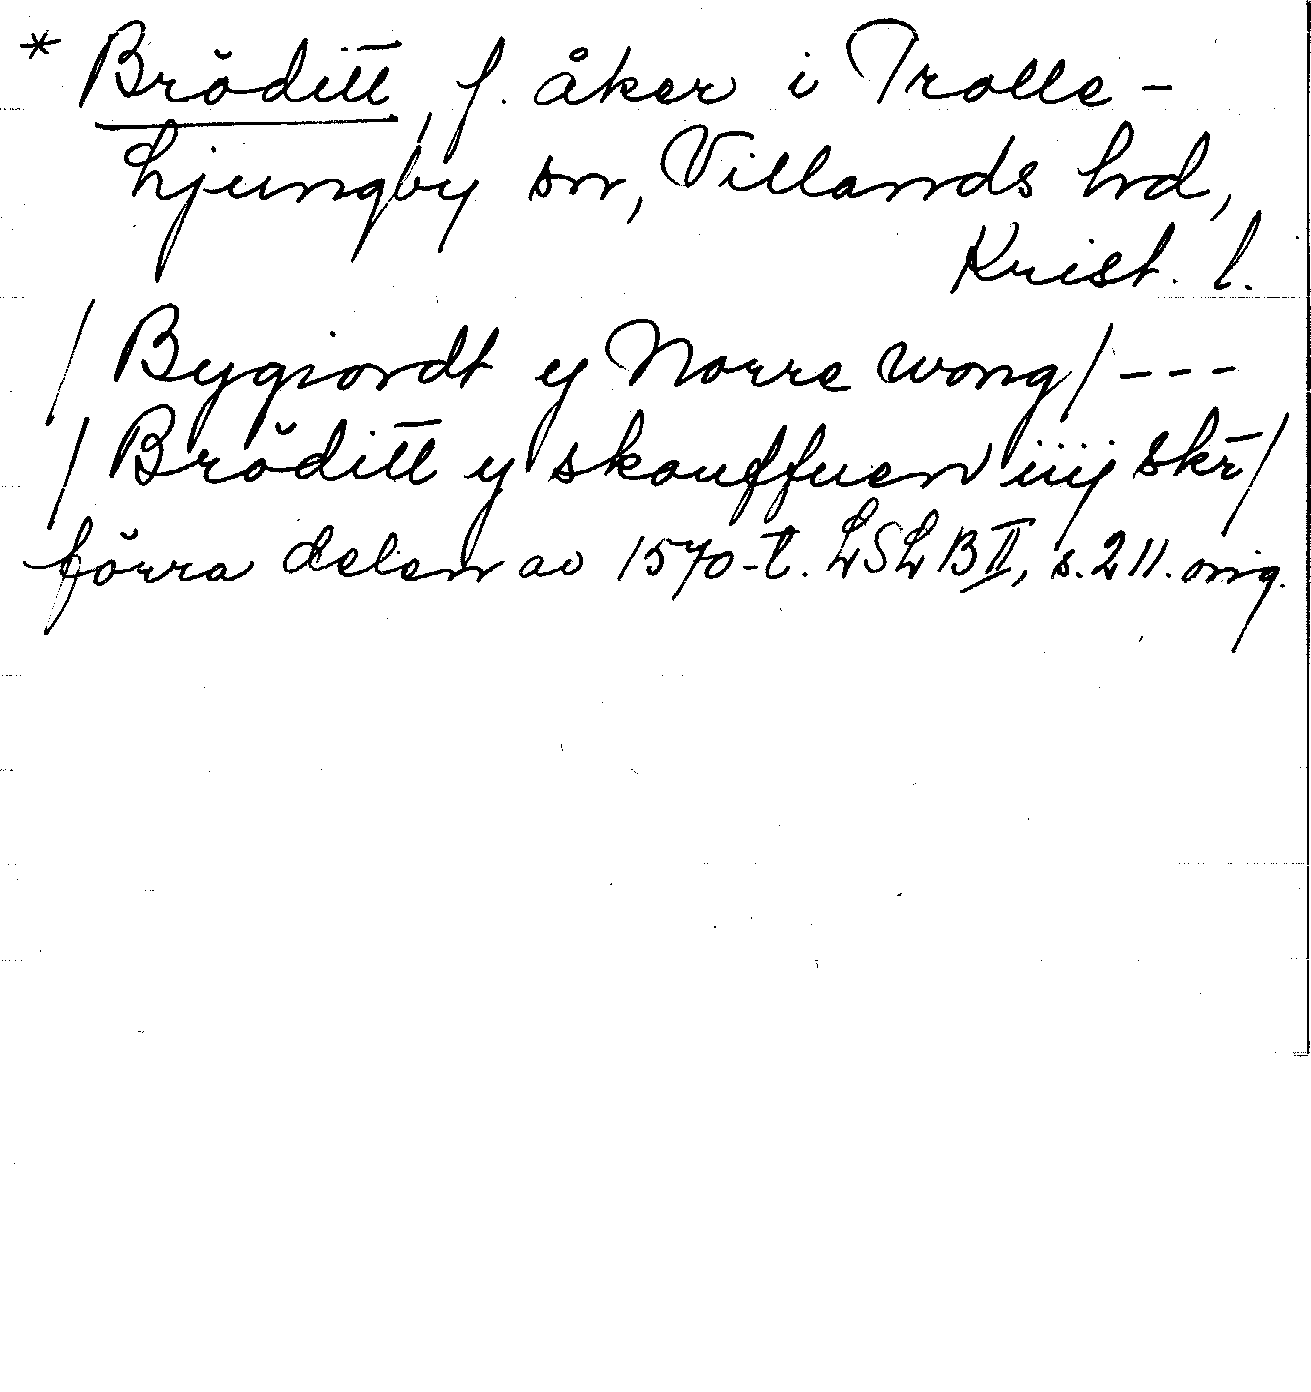 * Bröditt, f. åker i Trolle-
Ljungby sn, Villands hd,
Krist. l.
/ Bygiordt y Norre wong / ---
/ Bröditt y skouffuen iiij skr̄ /
förra delen av 1570-t. LSLB II, s. 211. orig.